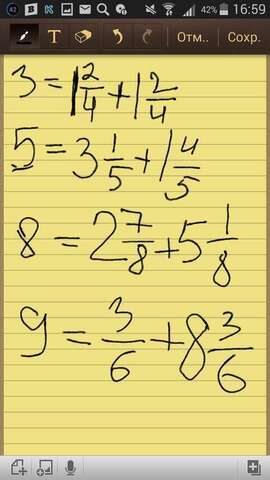 42% 16:59
T Отм.. Сохр.
3 = 1 2/4 + 1 2/4
5 = 3 1/5 + 1 4/5
8 = 2 7/8 + 5 1/8
9 = 3/6 + 8 3/6